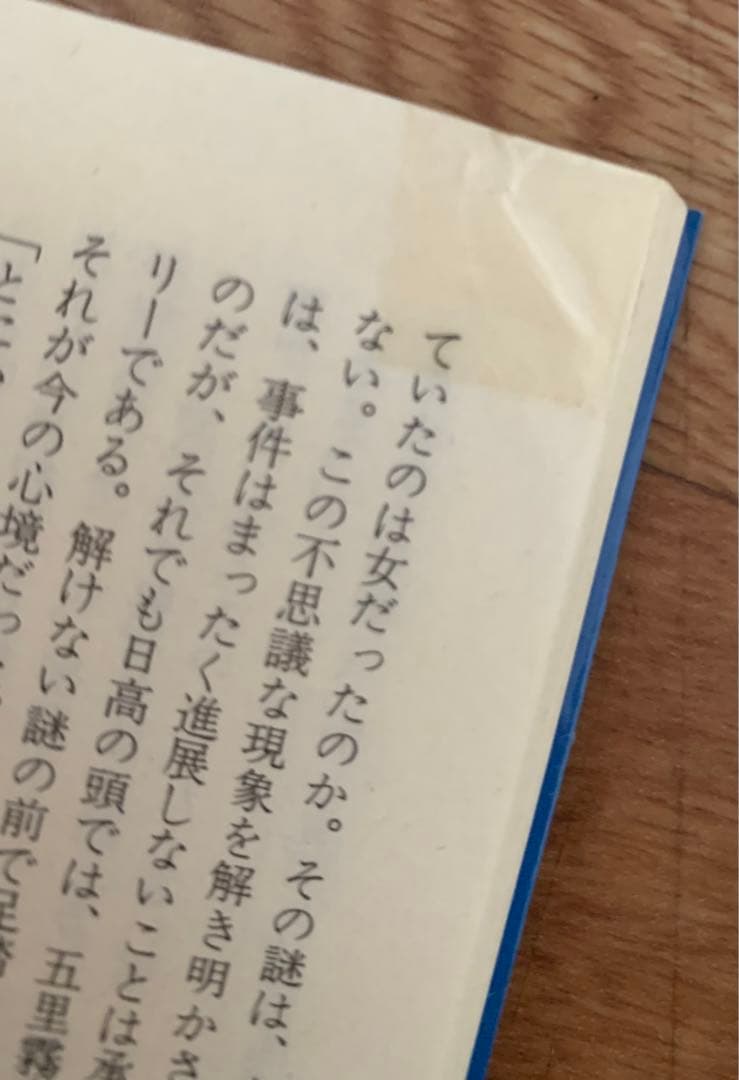 ていたのは女だったのか。その謎は、
ない。この不思議な現象を解き明かさ
は、事件はまったく進展しないことは承
のだが、それでも日高の頭では、五里霧
リーである。解けない謎の前で足踏
それが今の心境だった
「とに